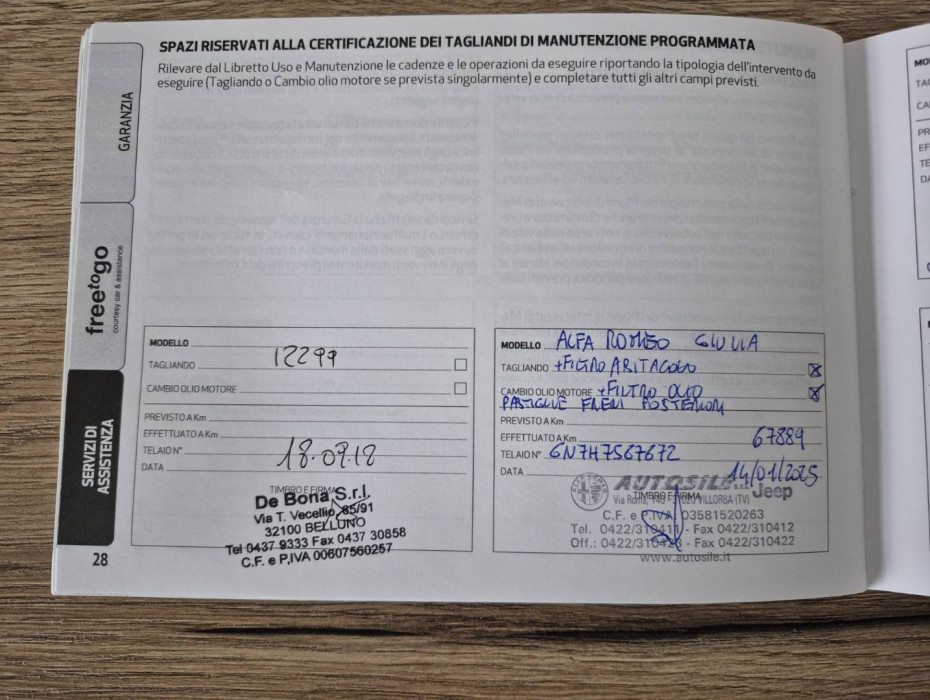 SPAZI RISERVATI ALLA CERTIFICAZIONE DEI TAGLIANDI DI MANUTENZIONE PROGRAMMATA
Rilevare dal Libretto Uso e Manutenzione le cadenze e le operazioni da eseguire riportando la tipologia dell'intervento da
eseguire (Tagliando o Cambio olio motore se prevista singolarmente) e completare tutti gli altri campi previsti.
GARANZIA
freetogo
courtesy car & assistance
SERVIZI DI
ASSISTENZA
28
MODELLO
TAGLIANDO 12299
CAMBIO OLIO MOTORE
PREVISTO A Km
EFFETTUATO A Km
TELAIO N°
DATA 18.09.18
TIMBRO E FIRMA
De Bona S.r.l.
Via T. Vecellio, 85/91
32100 BELLUNO
Tel 0437 9333 Fax 0437 30858
C.F. e P.IVA 00607560257
MODELLO ALFA ROMEO GIULIA
TAGLIANDO +FILTRO ARITACOLO
CAMBIO OLIO MOTORE +FILTRO OLIO
PASTIGLIE FRENI POSTERIORI
PREVISTO A Km
EFFETTUATO A Km 67889
TELAIO N° GN7H7567672
DATA 14/01/2025
AUTOSILE Jeep
TIMBRO E FIRMA
Via Roma, VILLORBA (TV)
C.F. e P.IVA 03581520263
Tel. 0422/310411 - Fax 0422/310412
Off.: 0422/310423 - Fax 0422/310422
www.autosile.it
MO
TAG
CA
PR
EF
TE
DA